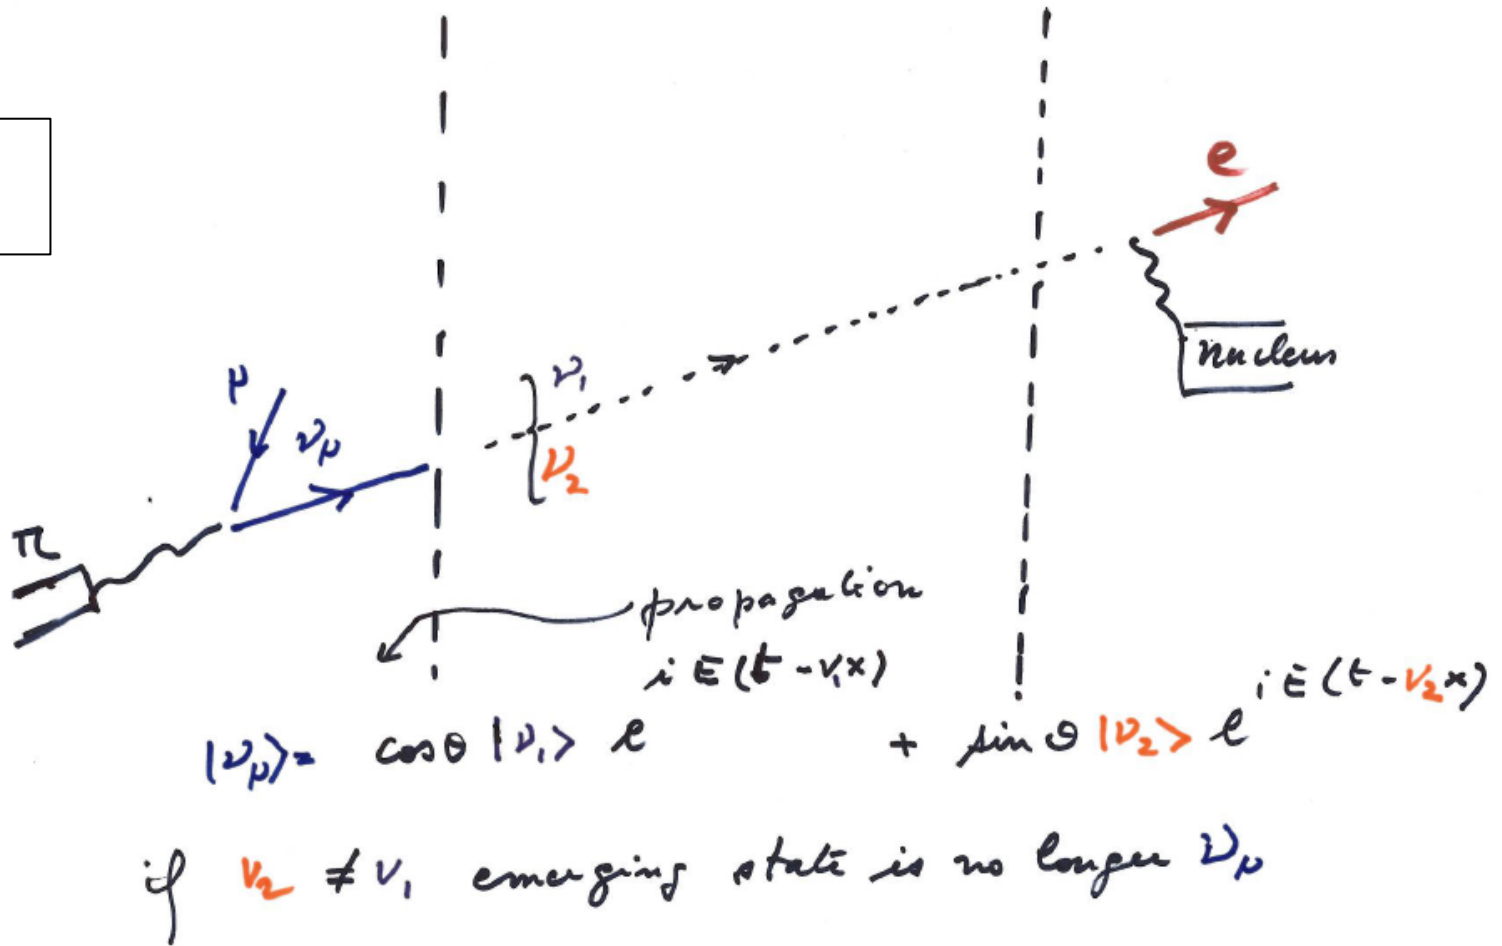 e
nucleus
ν₁
μ
ν_μ
ν₂
π
propagation
|ν_μ> = cosθ |ν₁> e^{iE(t - v₁x)} + sinθ |ν₂> e^{iE(t - v₂x)}
if v₂ ≠ v₁ emerging state is no longer ν_μ